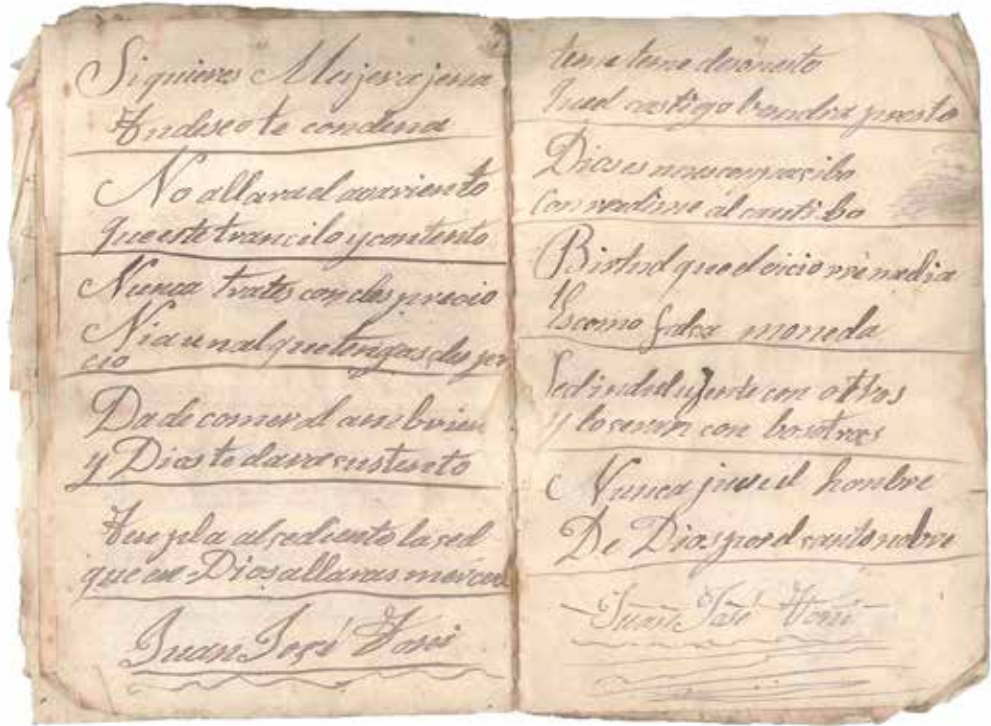 Si quieres Mujer ajena
tu deseo te condena
No allara el avariento
que este trancilo y contento
Nunca trates con desprecio
Ni aun al que tengas des per
cio
Da de comer al ambrien
y Dios te dara sustento
Templa al sediento la sed
que en Dios allaras merced
Juan José
teme teme desonesto
que el castigo bendra presto
Dios es mui compacibo
Con redime al cautibo
Birtud que el vicio rremedia
Es como falsa moneda
Sed indulujente con ottros
y lo seran con bosotros
Nunca jures el honbre
De Dios por el santo nobre
Juan José